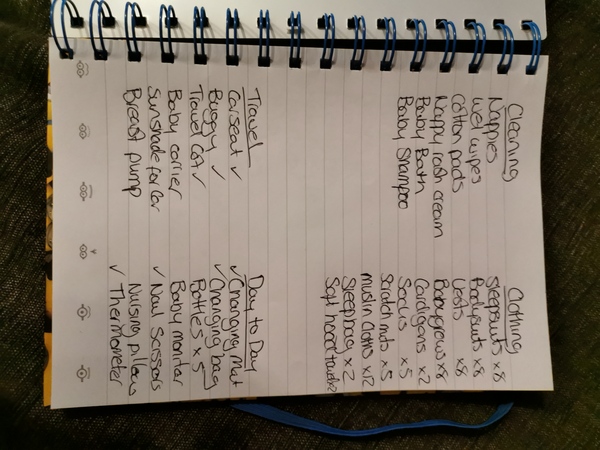 Cleaning
Nappies
Wet wipes
Cotton pads
Nappy rash cream
Baby Bath
Baby Shampoo
Clothing
Sleepsuits x8
Bodysuits x8
Vests x8
Babygrows x8
Cardigens x2
Socks x5
Scratch mits x5
muslin cloths x12
Sleepbag x2
Soft
Travel
Carseat ✓
Buggy ✓
Travel cot ✓
Baby carrier
Sunshade for car
Breast pump
Day to Day
✓ Changing mat
✓ Changing bag
Bottles x5
Baby monitor
✓ Nail scissors
Nursing pillow
✓ Thermometer